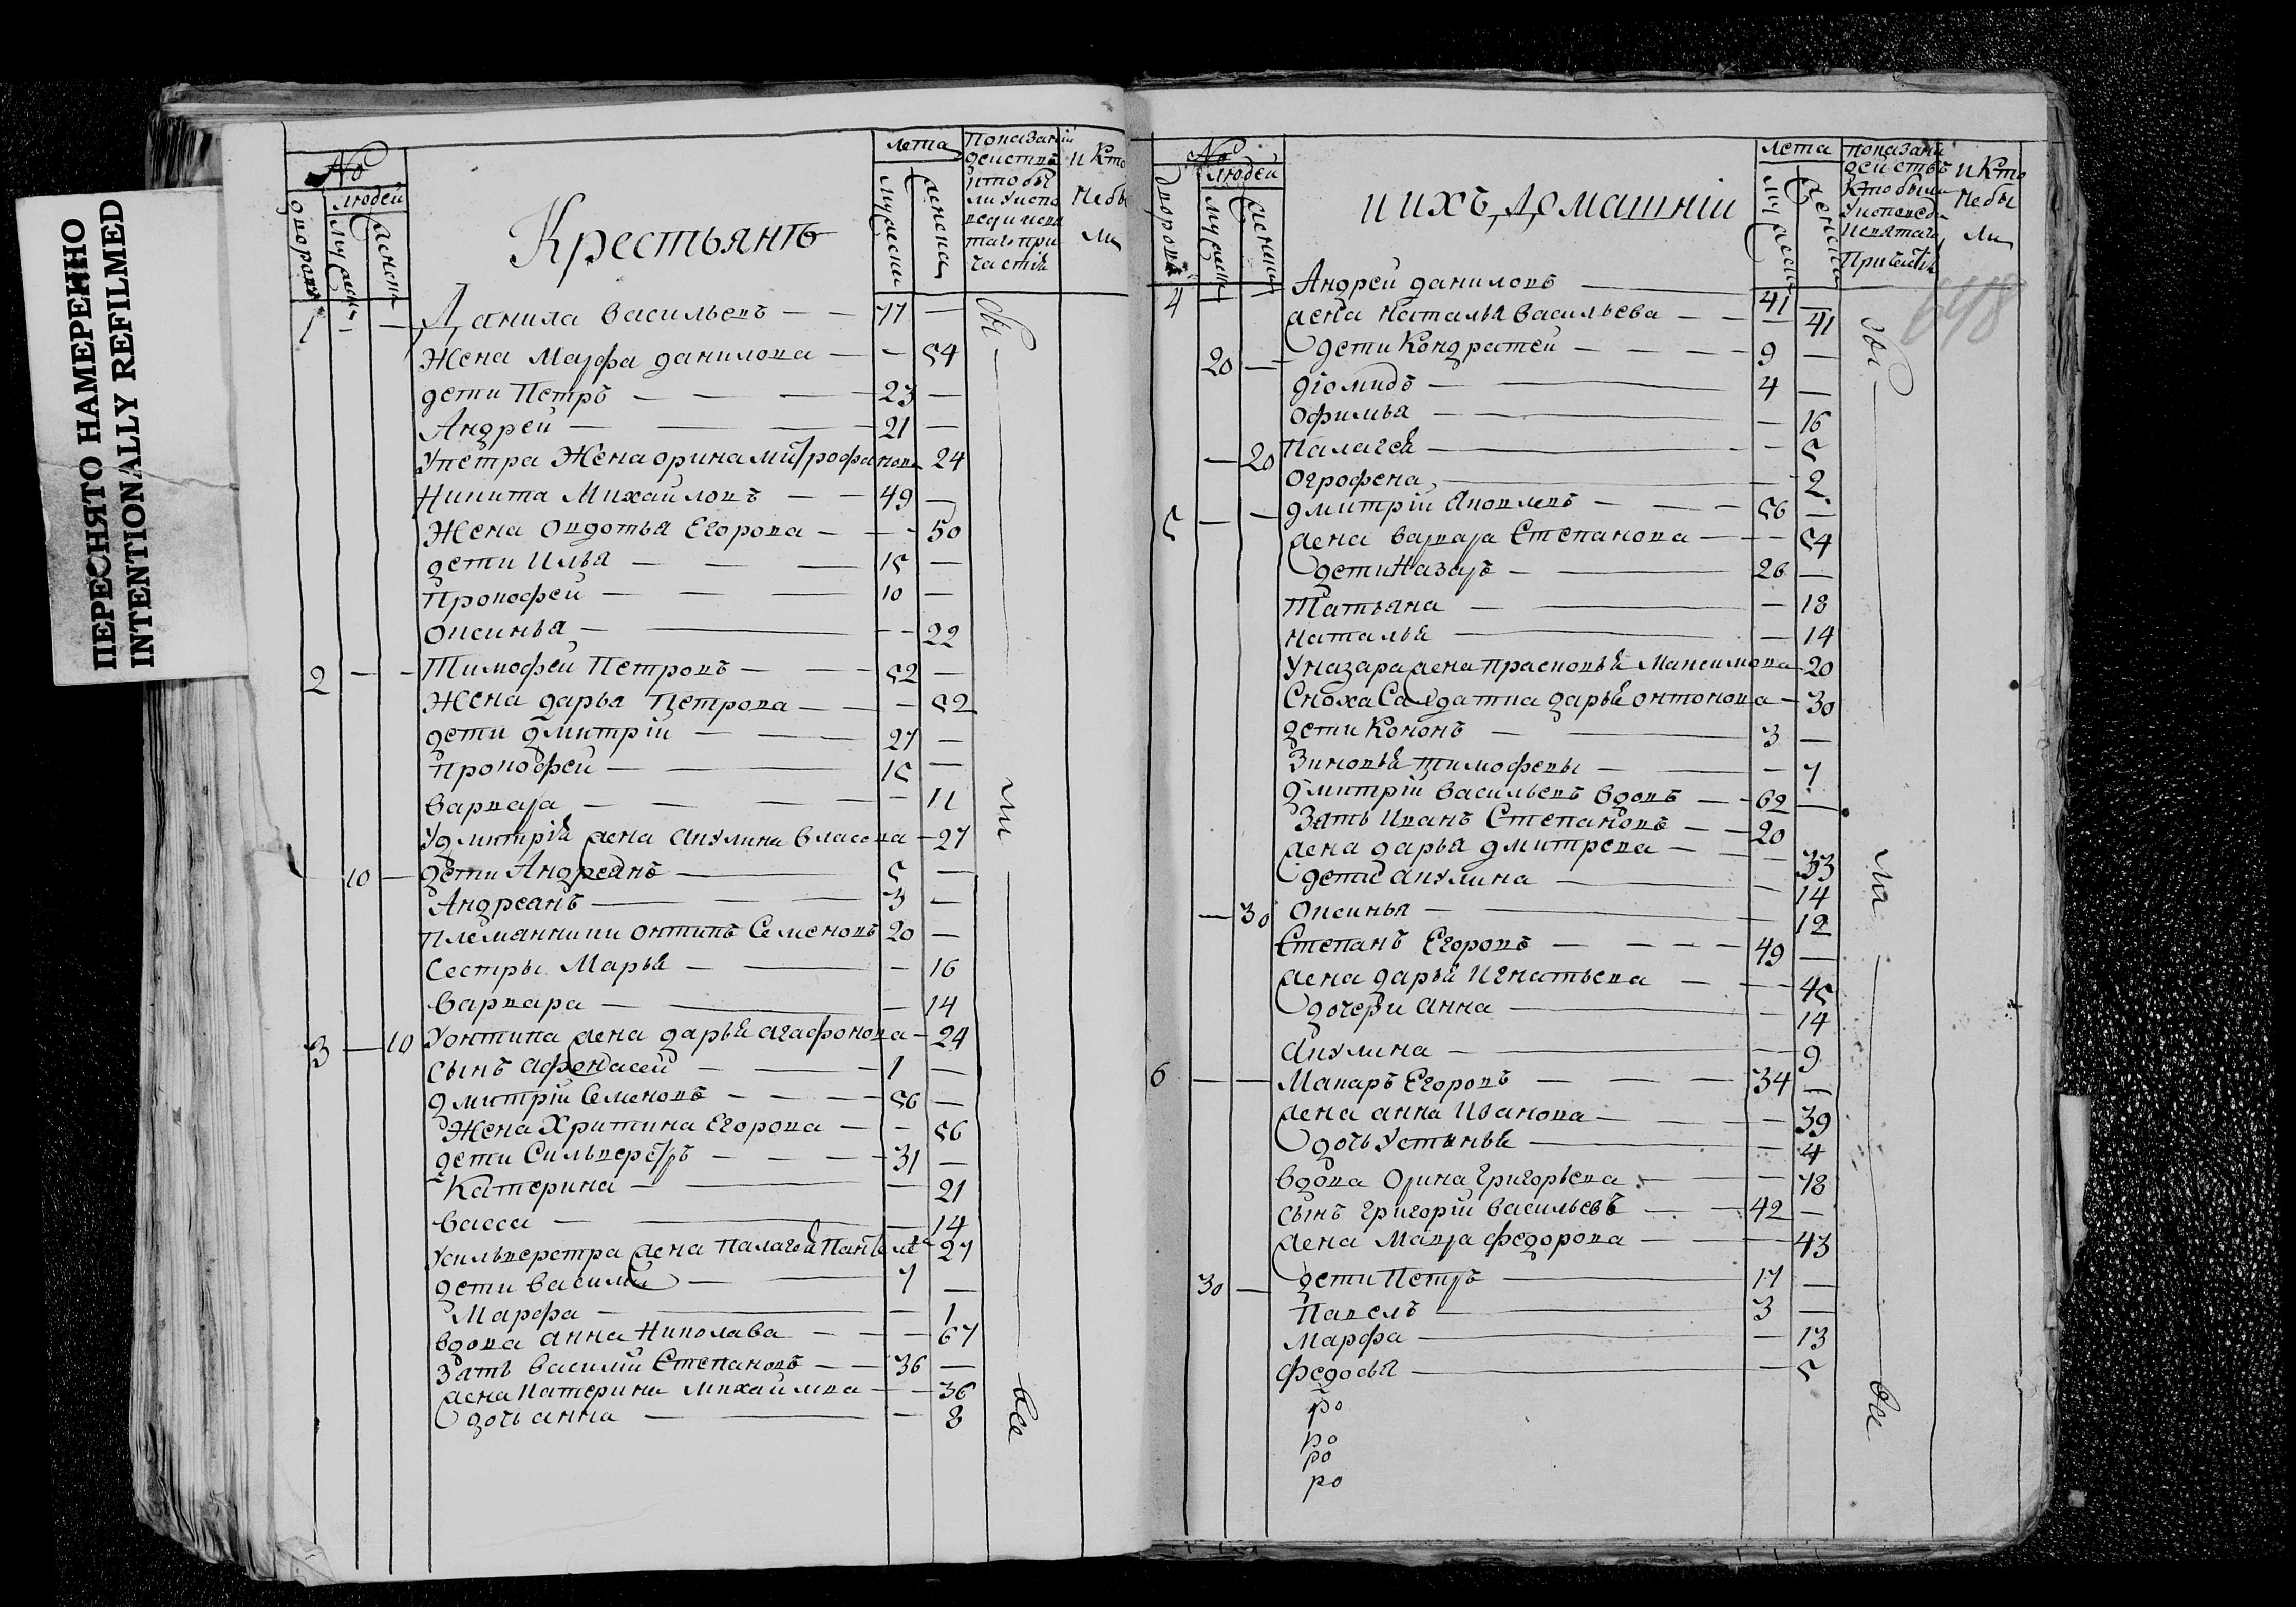 ПЕРЕСНЯТО НАМЕРЕННО
INTENTIONALLY REFILMED
№
людей
Крестьянъ
лета
Показаніи
действъ
и кто
небы
ли
Данила Васильевъ — — 77 —
Жена Марфа данилова — — 54
дети Петръ — — — 23 —
Андрей — — — 21 —
Упетра Жена орина митрофанова 24
Никита Михайловъ — — 49 —
Жена Овдотья Егорова — — 50
дети Илья — — — 15 —
Прокофей — — — 10 —
Оксинья — — — 22
2 — — Тимофей Петровъ — — 52 —
Жена дарья Петрова — — — 52
дети дмитрій — — — 27 —
Прокофей — — — 15 —
варвара — — — 11
Удмитрія жена Акулина власова — 27
10 — дети Андреянъ — 5 —
Андреанъ — — — 3 —
племянники онтипъ Семеновъ 20 —
Сестры Марья — — — 16
варвара — — — 14
3 — 10 Уонтипа жена дарья агафонова — 24
сынъ Афонасей — — 1 —
дмитрій Семеновъ — — — 56 —
Жена Христина Егорова — — 56
дети Сильверстръ — — — 31 —
Катерина — — — 21
васса — — — 14
Усильверстра жена Палагея 27
дети василий — — 7 —
Марфа — — — 1
вдова анна Николава — — — 67
Зять василий Степановъ — — 36 —
жена Катерина михайлова — — 36
дочь анна — — — 8
бы
ли
все
№
людей
и ихъ домашніи
лета
показани
действъ
кто были
и кто
небы
ли
648
4 Андрей даниловъ — 41 —
жена Наталья васильева — — — 41
20 — дети Кондратей — — — — 9 —
діомидъ — — 4 —
Офимья — — — 16
— 20 Палагея — — 5
Огрофена — — 2
5 — — дмитрій Яковлевъ — — — 56 —
жена варвара Степанова — — — 54
дети Назаръ — — 26 —
Татьяна — — — 18
наталья — — 14
Уназара жена прасковья Максимова — 20
Сноха Салдатка дарья онтонова — 30
дети Кононъ — — 3 —
Зиновья тимофевы — — — 7
дмитрій васильевъ вдовъ — — 62 —
Зять Иванъ Степановъ — — 20
жена дарья дмитрева — — — 33
дети акулина — — 14
— 30 Оксинья — — — 12
Степанъ Егоровъ — — — — 49 —
жена дарья Игнатьева — — — 45
дочери анна — — 14
Акулина — — — 9
6 — — Макаръ Егоровъ — — — 34 —
жена анна Иванова — — — 39
дочь Устинья — — 4
вдова Орина григорьева — — 78
сынъ григорій васильевъ — — 42 —
жена Мавра федорова — — — 43
30 — дети Петръ — 17 —
Павелъ — 3 —
Марфа — — 13
федосья — — 5
ро
ро
ро
ро
бы
ли
все